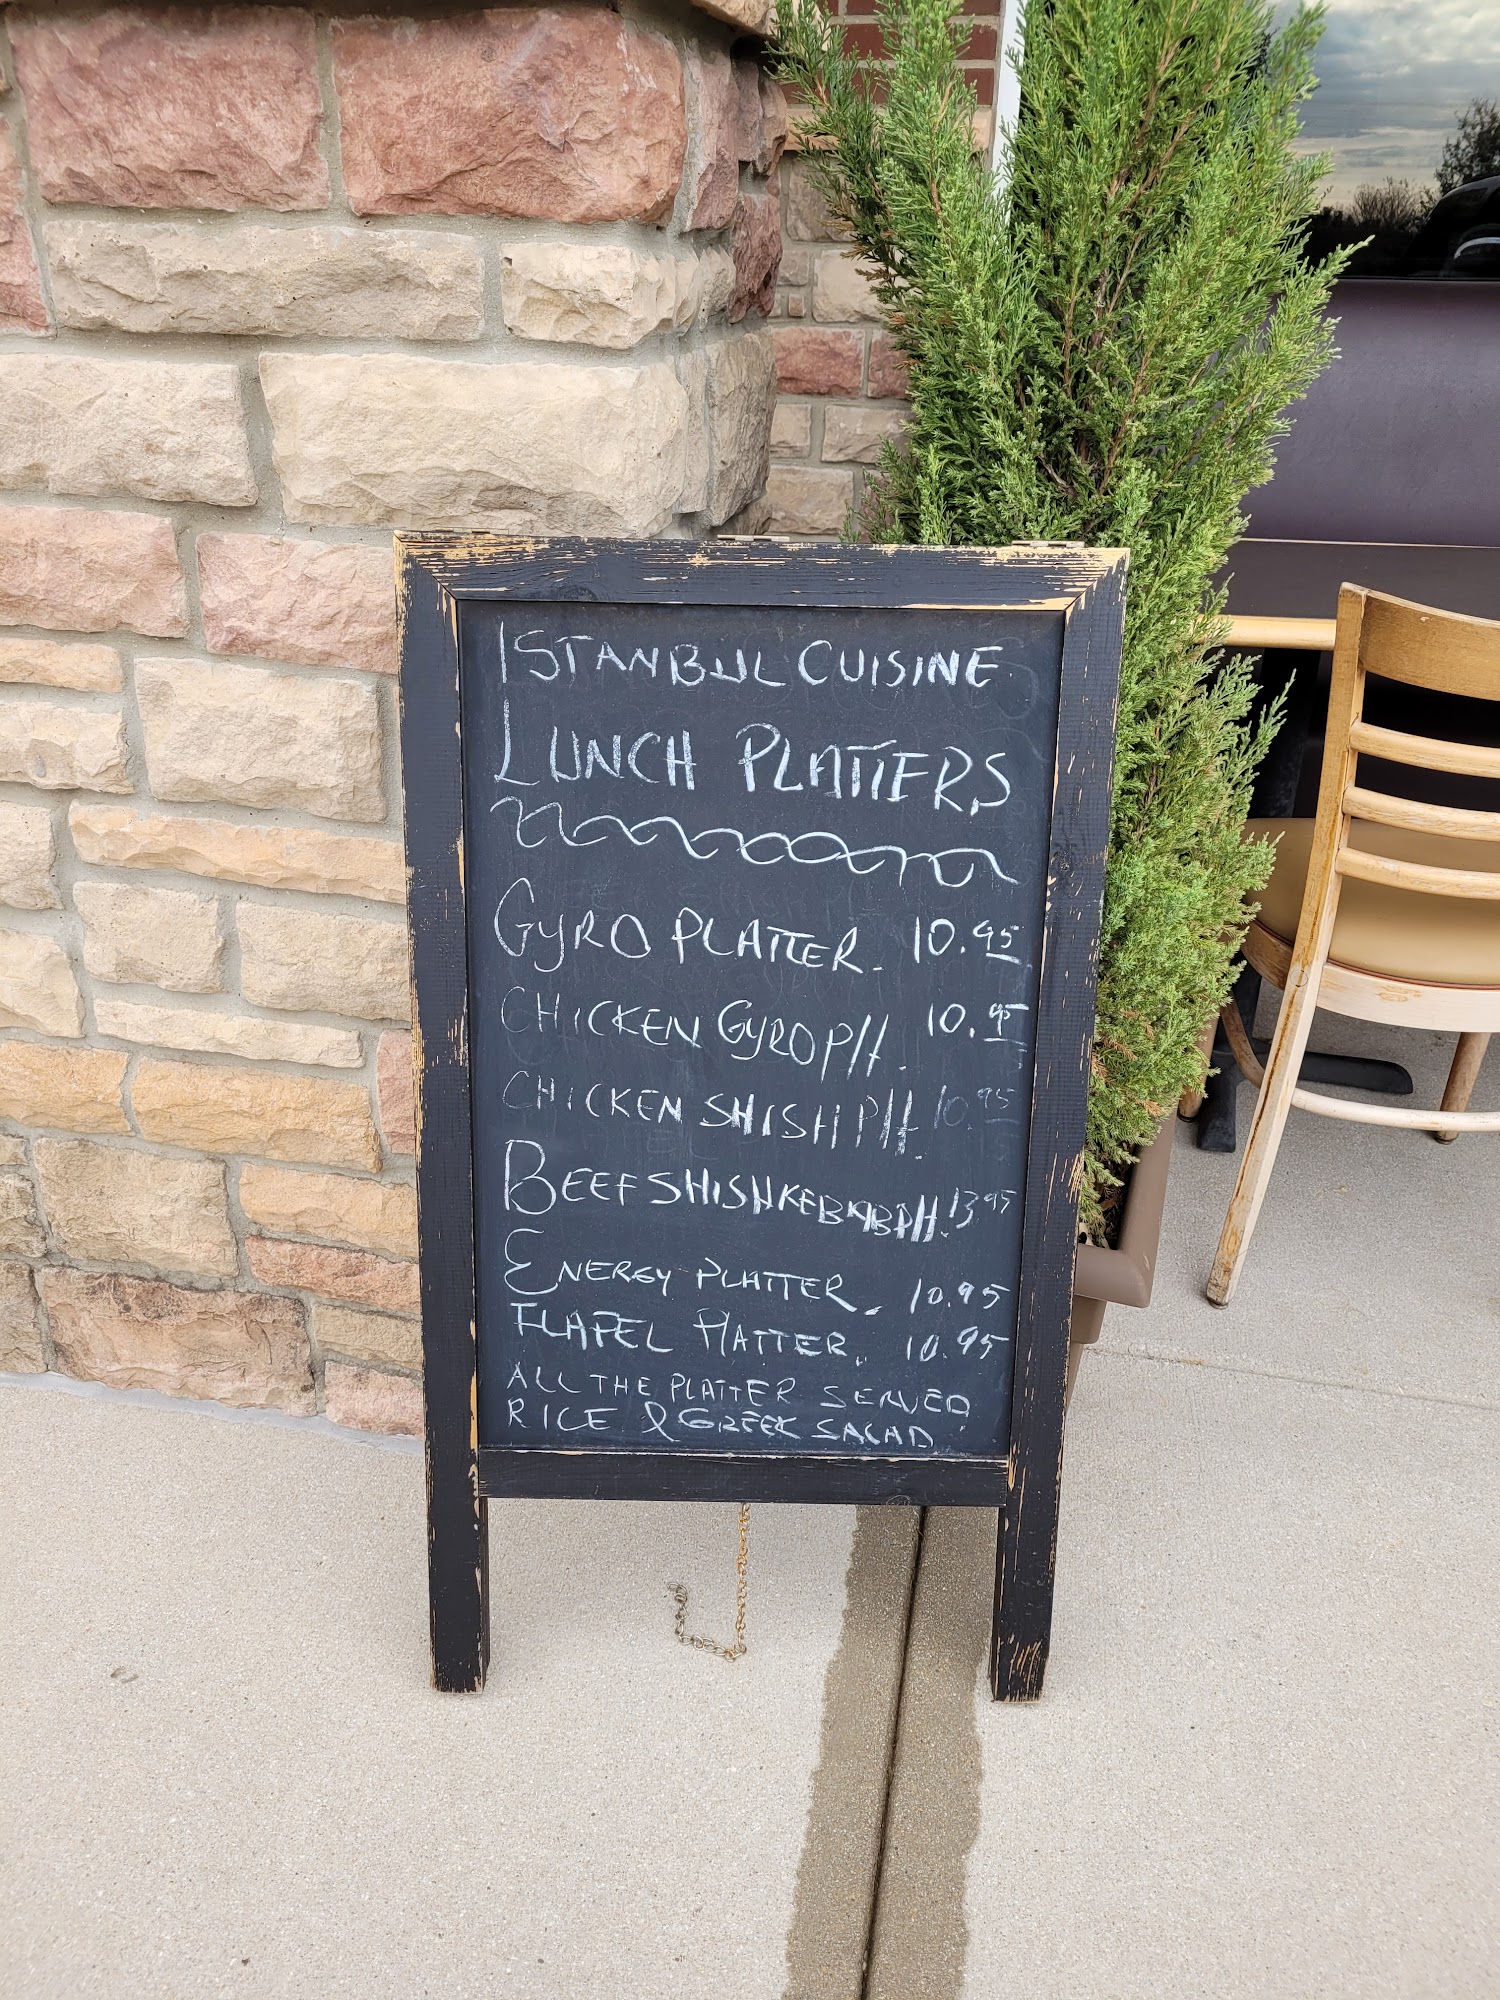 ISTANBUL CUISINE
LUNCH PLATTERS
GYRO PLATTER. 10.95
CHICKEN GYRO Plt. 10.95
CHICKEN SHISH Plt. 10.95
BEEF SHISH KEBAB Plt. 13.95
ENERGY PLATTER. 10.95
FLAFEL PLATTER. 10.95
ALL THE PLATTER SERVED
RICE & GREEK SALAD